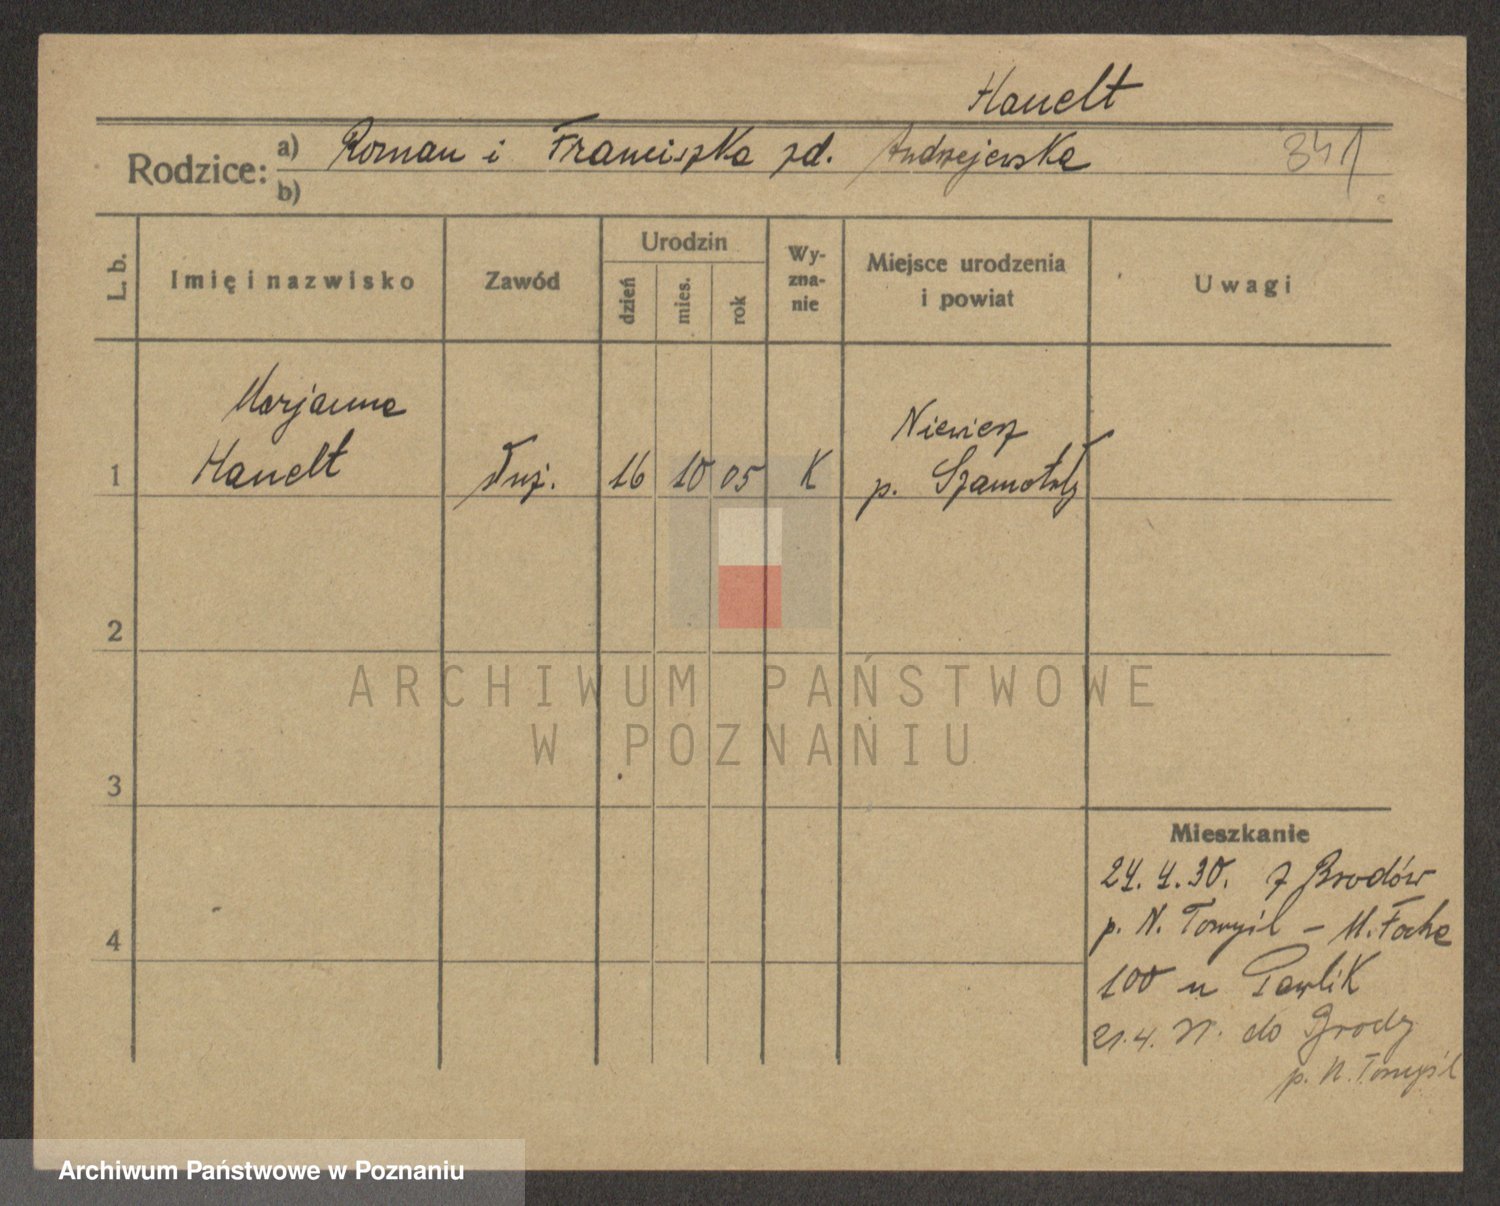 Hanelt
Rodzice: a) Roman i Franciszka zd. Andrzejewska 341
b)
L. b. Imię i nazwisko Zawód Urodzin dzień mies. rok Wyznanie Miejsce urodzenia i powiat Uwagi
Marjanna
Hanelt
Niewierz
1 służ. 16 10 05 K p. Szamotuły
2
ARCHIWUM PAŃSTWOWE
W POZNANIU
3
Mieszkanie
24. 4. 30. z Brodów
4 p. N. Tomyśl - M. Focha
100 u Pawlik
21. 4. 31. do Brody
p. N. Tomyśl
Archiwum Państwowe w Poznaniu